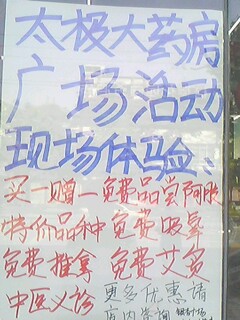 太极大药房
广场活动
现场体验
买一赠一免费品尝阿胶
特价品种 免费吸氧
免费推拿 免费艾灸
中医义诊 更多优惠请
店内咨询